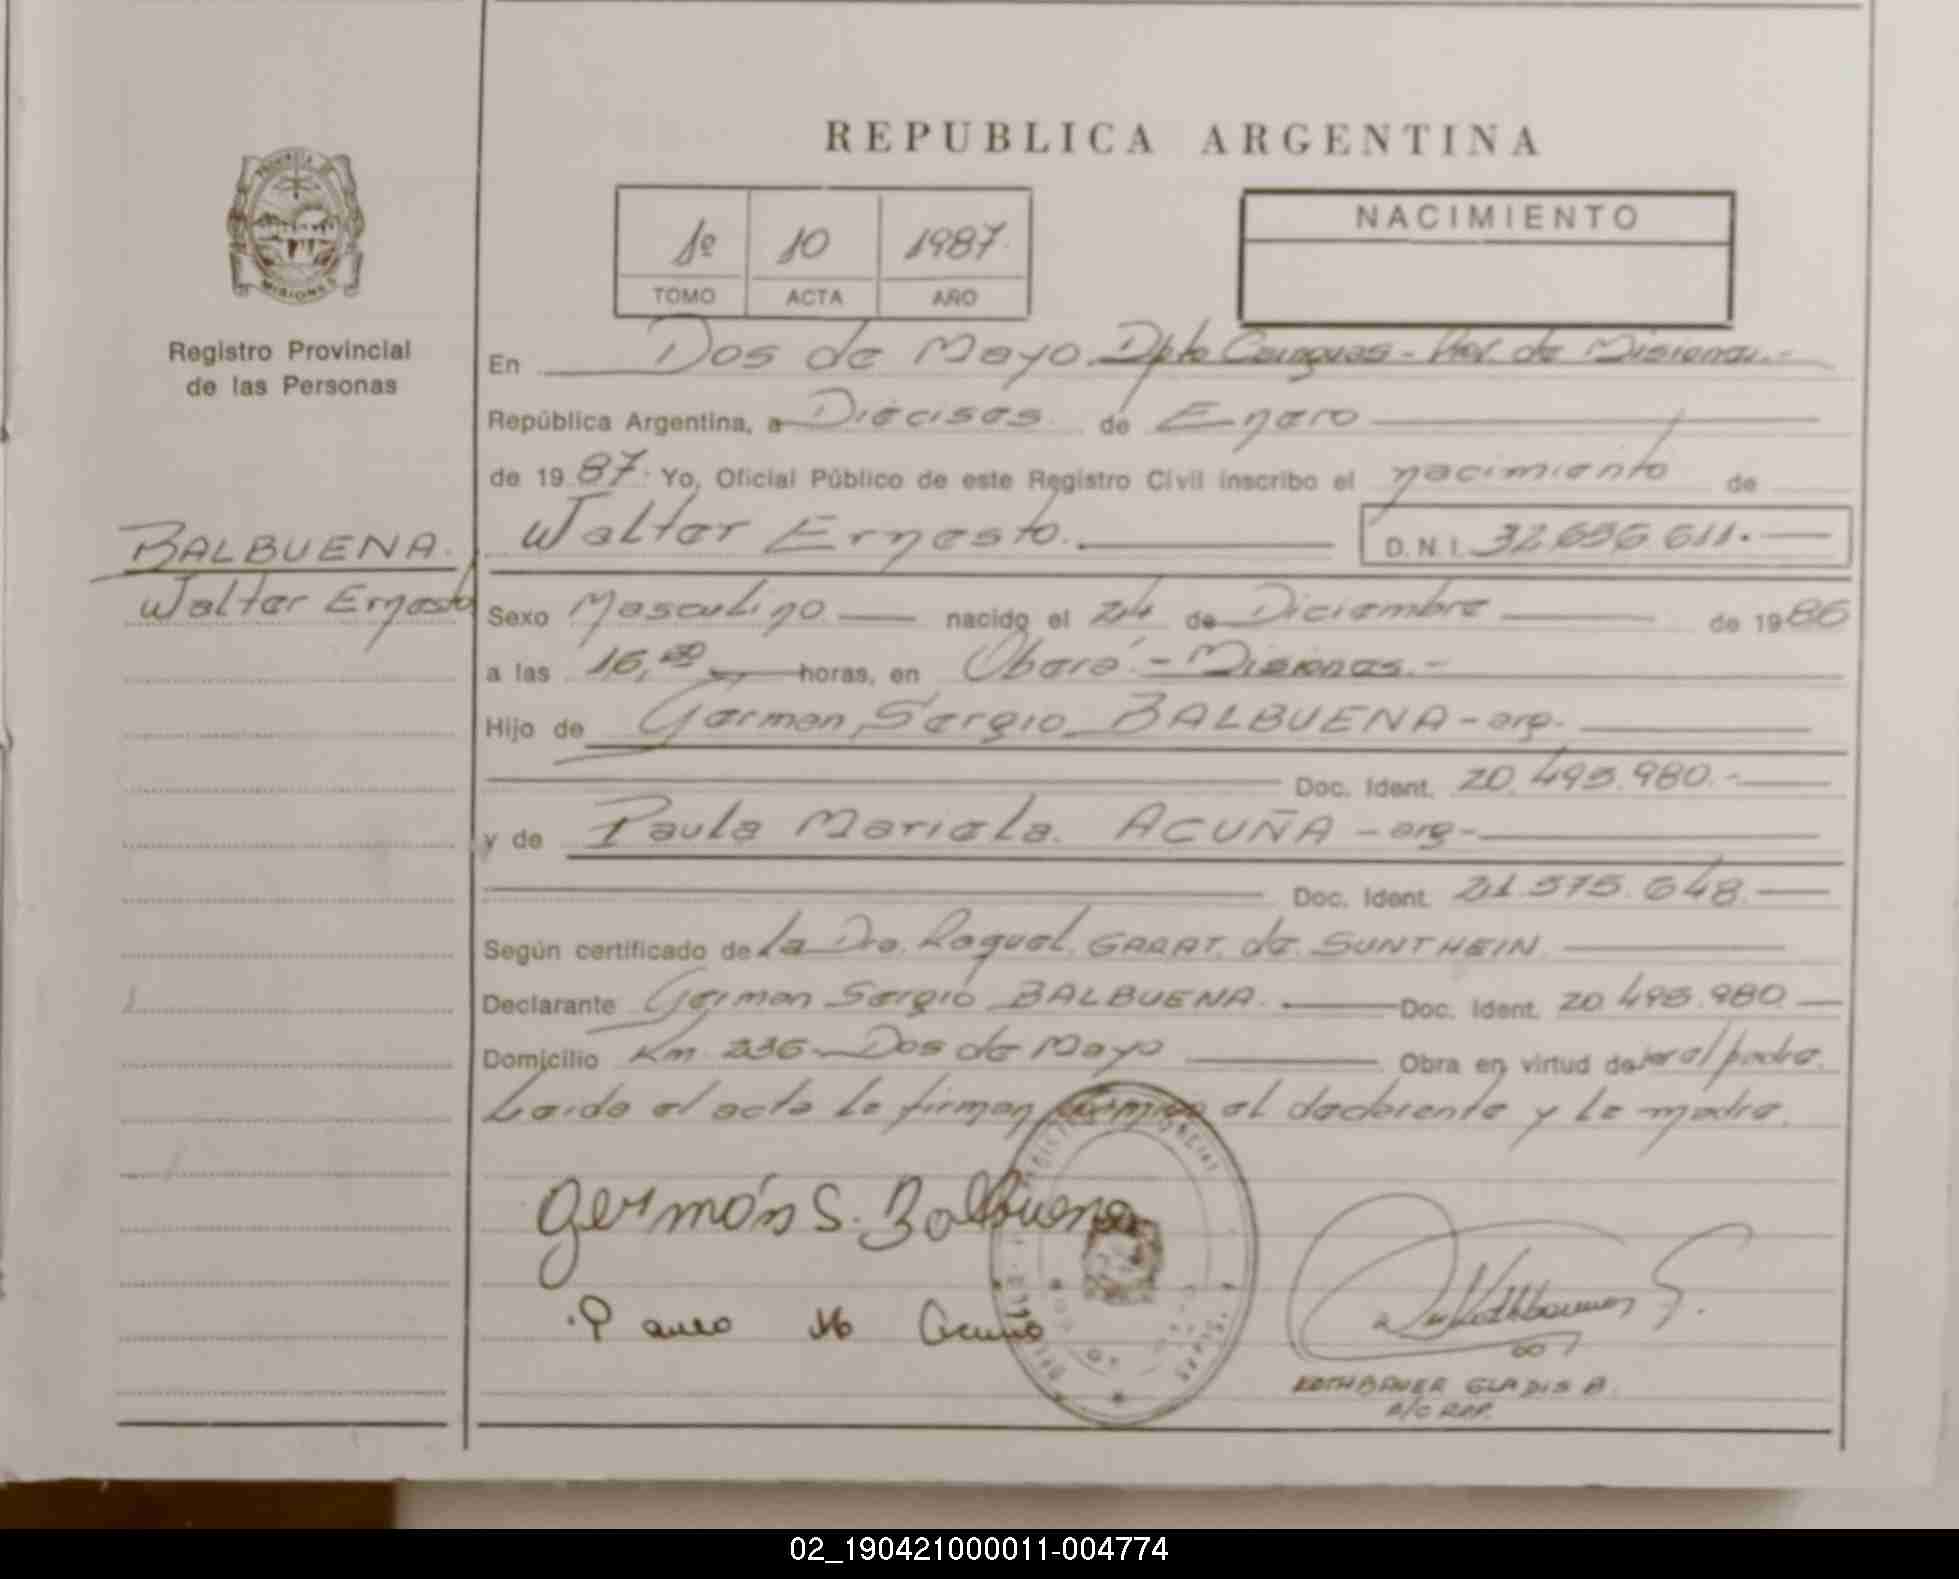 REPUBLICA ARGENTINA
PROVINCIA DE
MISIONES
Registro Provincial
de las Personas
1º 10 1987
TOMO ACTA AÑO
NACIMIENTO
En Dos de Mayo Dpto Cainguas - Prov. de Misiones.-
República Argentina, a Dieciseis de Enero
de 1987. Yo, Oficial Público de este Registro Civil inscribo el nacimiento de
Walter Ernesto. D.N.I. 32.656.611.-
BALBUENA.
Walter Ernesto
Sexo Masculino nacido el 24 de Diciembre de 1986
a las 16, horas, en Oberá - Misiones.-
Hijo de German Sergio BALBUENA - arg.
Doc. Ident. 20.495.980.-
y de Paula Mariela. ACUÑA - arg-
Doc. Ident. 21.575.648.
Según certificado de la Dra. Raquel GARAT. de SUNTHEIN
Declarante German Sergio BALBUENA. Doc. Ident. 20.495.980
Domicilio Km 236 - Dos de Mayo Obra en virtud de ser el padre.
Leida el acta la firman conmigo el declarante y la madre.
Germán S. Balbuena
Paula M Acuña
Kothbauer G.
KOTHBAUER GLADIS B.
A/C RPP.
02_190421000011-004774